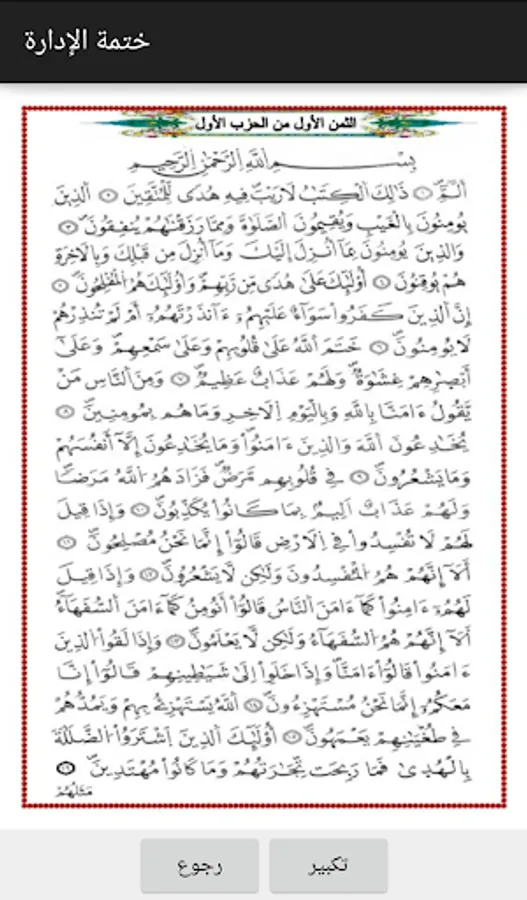 ختمة الإدارة
الثمن الأول من الحزب الأول
بِسْمِ اِللَّهِ اِلرَّحْمَٰنِ اِلرَّحِيمِ
أَلَٓمِّٓۖ ١ ذَٰلِكَ اَلْكِتَٰبُ لَا رَيْبَۖ فِيهِ هُدىٗ لِّلْمُتَّقِينَ ٢ اَلذِينَ
يُومِنُونَ بِالْغَيْبِ وَيُقِيمُونَ اَلصَّلَوٰةَ وَمِمَّا رَزَقْنَٰهُمْ يُنفِقُونَۖ ٣
وَالذِينَ يُومِنُونَ بِمَآ أُنزِلَ إِلَيْكَ وَمَآ أُنزِلَ مِن قَبْلِكَ وَبِالَاخِرَةِ
هُمْ يُوقِنُونَۖ ٤ أُوْلَٰٓئِكَ عَلَىٰ هُدىٗ مِّن رَّبِّهِمْۖ وَأُوْلَٰٓئِكَ هُمُ اُلْمُفْلِحُونَۖ ٥
إِنَّ اَلذِينَ كَفَرُواْ سَوَآءٌ عَلَيْهِمُۥٓ ءَآنذَرْتَهُمُۥٓ أَمْ لَمْ تُنذِرْهُمْ
لَا يُومِنُونَۖ ٦ خَتَمَ اَللَّهُ عَلَىٰ قُلُوبِهِمْ وَعَلَىٰ سَمْعِهِمْۖ وَعَلَىٰٓ
أَبْصٰ۪رِهِمْ غِشَٰوَةٞۖ وَلَهُمْ عَذَابٌ عَظِيمٞۖ ٧ وَمِنَ اَلنَّاسِ مَنْ
يَّقُولُ ءَامَنَّا بِاللَّهِ وَبِالْيَوْمِ اِلَاخِرِ وَمَا هُم بِمُومِنِينَۖ ٨
يُخَٰدِعُونَ اَللَّهَ وَالذِينَ ءَامَنُواْۖ وَمَا يُخَٰدِعُونَ إِلَّآ أَنفُسَهُمْ
وَمَا يَشْعُرُونَۖ ٩ فِي قُلُوبِهِم مَّرَضٞۖ فَزَادَهُمُ اُللَّهُ مَرَضاٗ
وَلَهُمْ عَذَابٌ أَلِيمُۢ بِمَا كَانُواْ يُكَذِّبُونَۖ ١٠ وَإِذَا قِيلَ
لَهُمْ لَا تُفْسِدُواْ فِي اِلَارْضِ قَالُوٓاْ إِنَّمَا نَحْنُ مُصْلِحُونَۖ ١١
أَلَآ إِنَّهُمْ هُمُ اُلْمُفْسِدُونَ وَلَٰكِن لَّا يَشْعُرُونَۖ ١٢ وَإِذَا قِيلَ
لَهُمُۥٓ ءَامِنُواْ كَمَآ ءَامَنَ اَلنَّاسُ قَالُوٓاْ أَنُومِنُ كَمَآ ءَامَنَ اَلسُّفَهَآءُۖ
أَلَآ إِنَّهُمْ هُمُ اُلسُّفَهَآءُ وَلَٰكِن لَّا يَعْلَمُونَۖ ١٣ وَإِذَا لَقُواْ اُلذِينَ
ءَامَنُواْ قَالُوٓاْ ءَامَنَّاۖ وَإِذَا خَلَوِاْ اِلَىٰ شَيَٰطِينِهِمْ قَالُوٓاْ إِنَّا
مَعَكُمُۥٓ إِنَّمَا نَحْنُ مُسْتَهْزِءُونَۖ ١٤ اَللَّهُ يَسْتَهْزِۓُ بِهِمْ وَيَمُدُّهُمْ
فِي طُغْيَٰنِهِمْ يَعْمَهُونَۖ ١٥ أُوْلَٰٓئِكَ اَلذِينَ اَشْتَرَوُاْ اُلضَّلَٰلَةَ
بِالْهُدَىٰ فَمَا رَبِحَت تِّجَٰرَتُهُمْ وَمَا كَانُواْ مُهْتَدِينَۖ ١٦
مَثَلُهُمْ
رجوع
تكبير